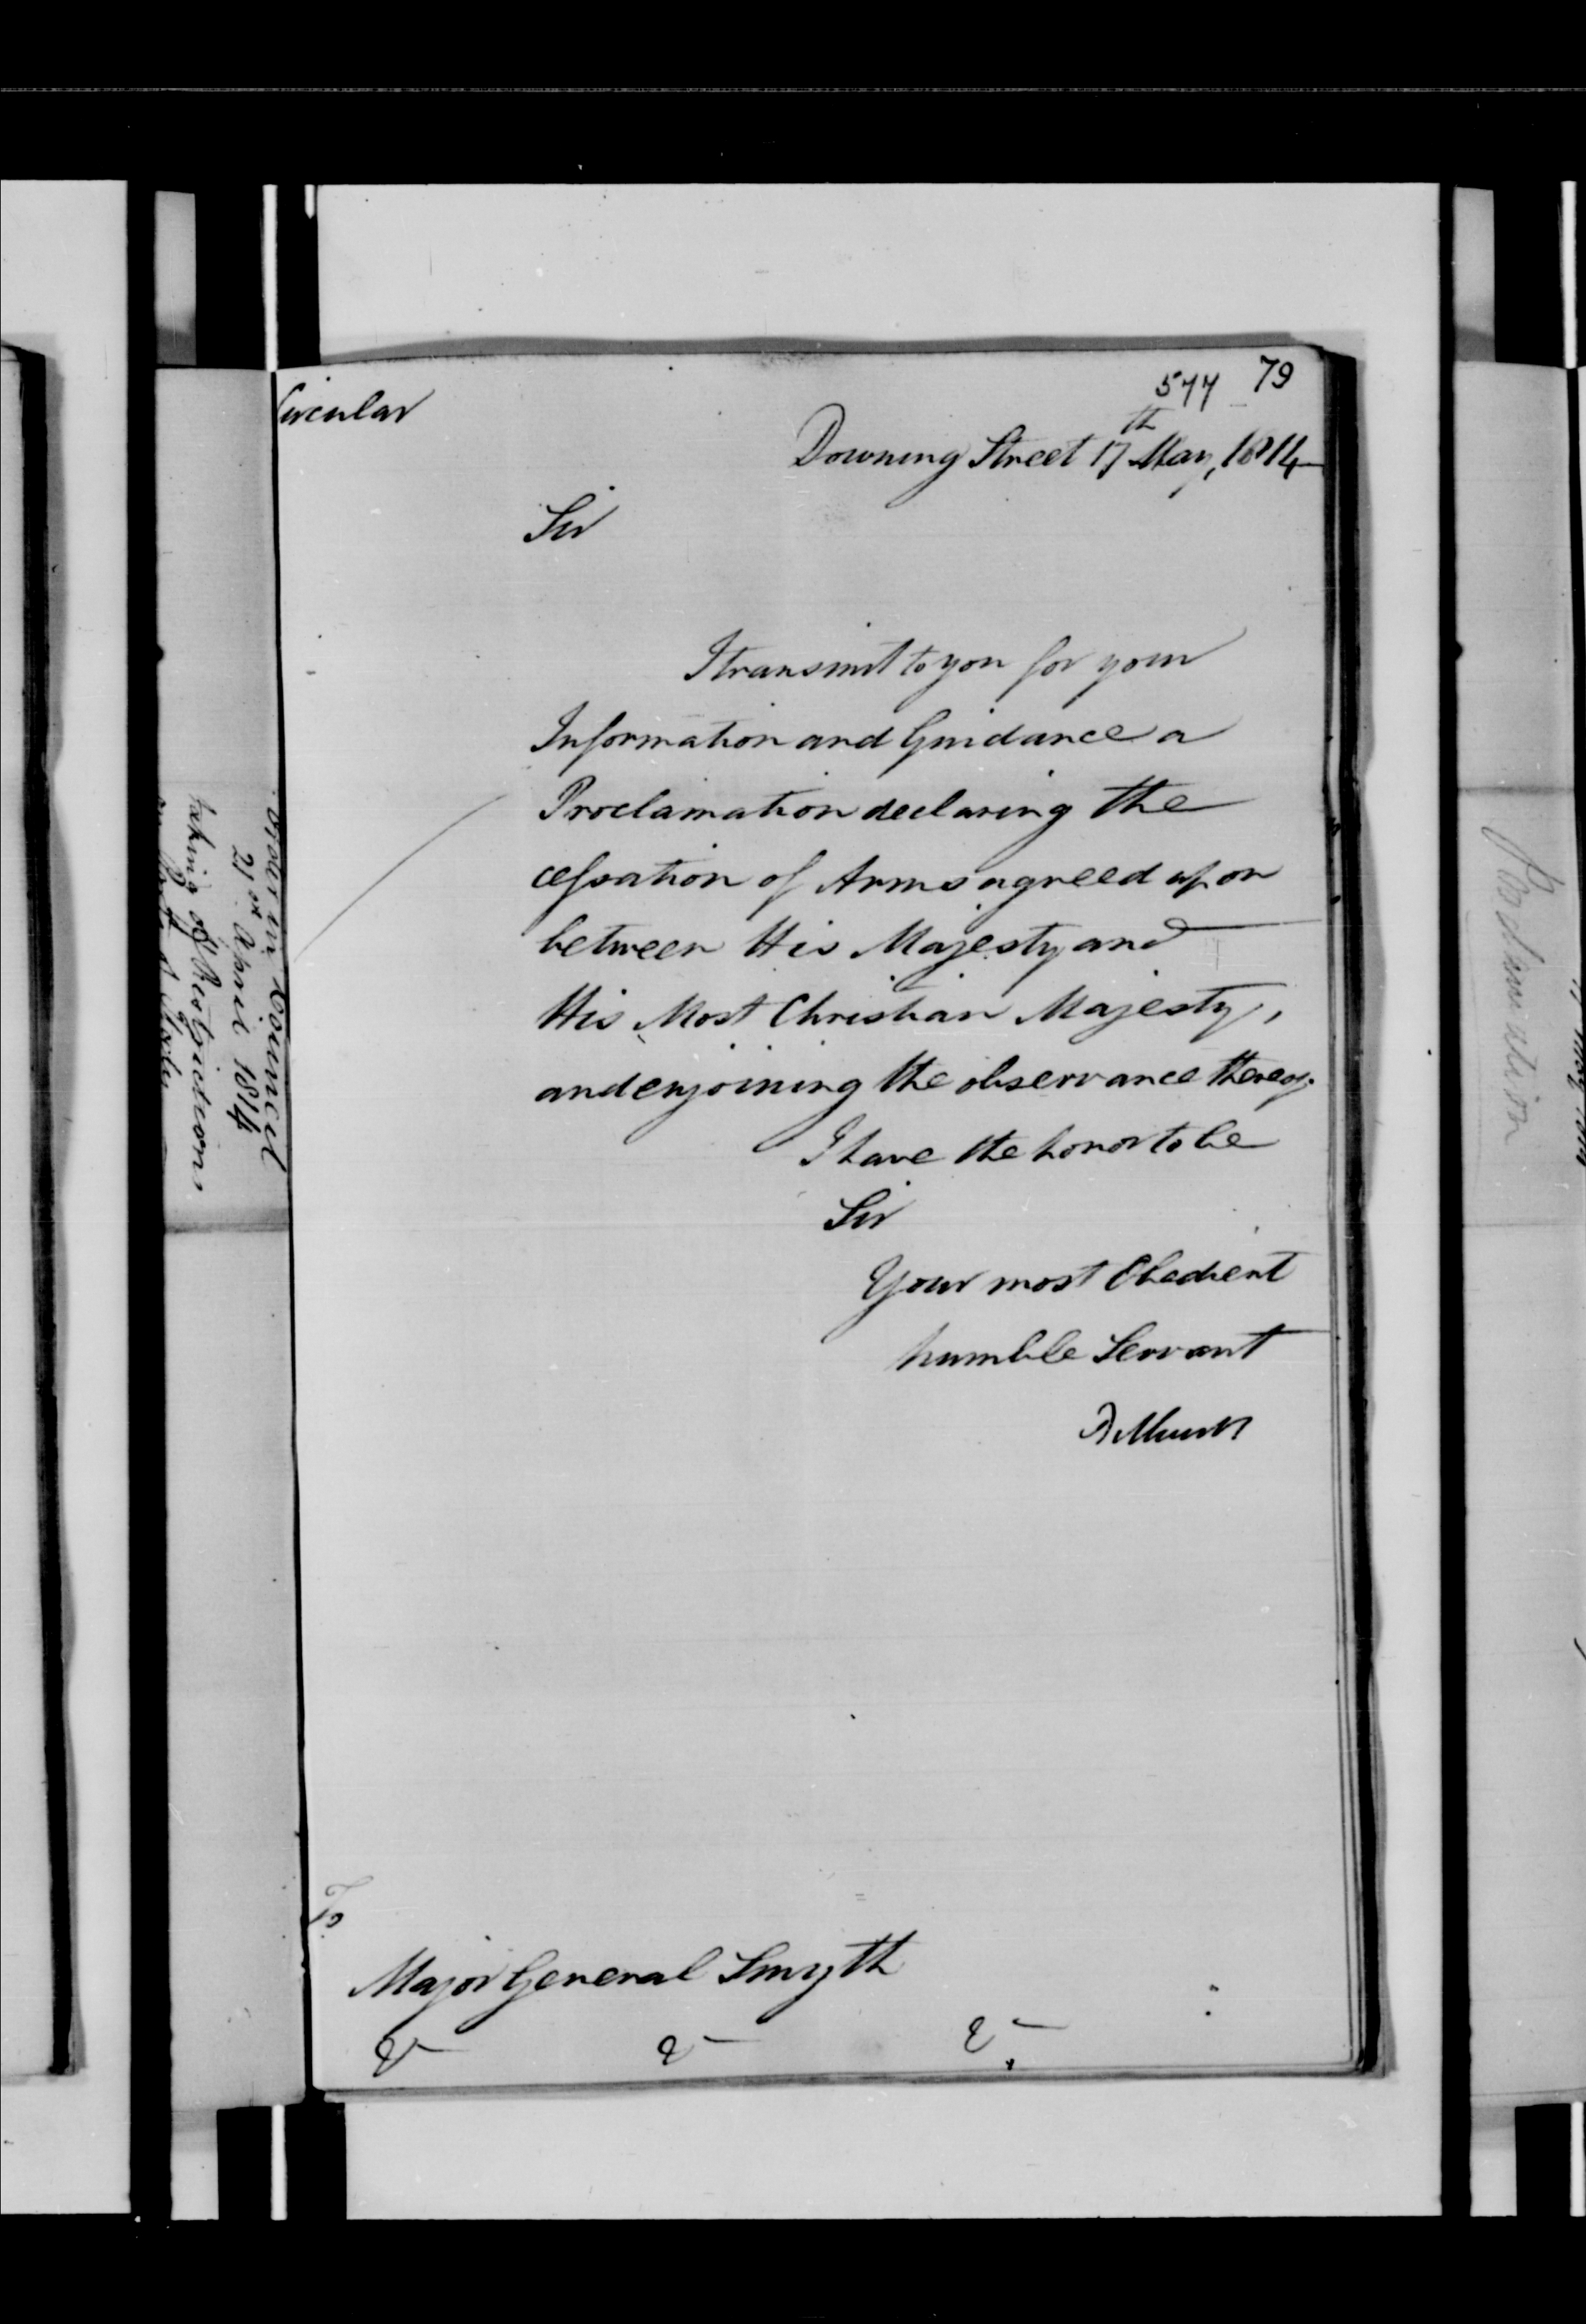 577 79
Circular
Downing Street 17th May, 1814
Sir
I transmit to you for your
Information and Guidance a
Proclamation declaring the
cessation of Arms agreed upon
between His Majesty and
His Most Christian Majesty,
and enjoining the observance thereof.
I have the honor to be
Sir
Your most Obedient
humble Servant
Bathurst
To
Major General Smyth
&c &c &c
Order in Council
21st April 1814
taking off Restrictions
Proclamation